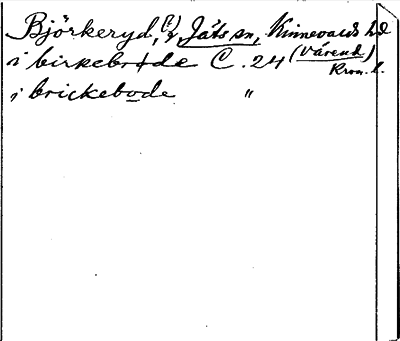 Björkeryd, (?) Jäts sn, Kinnevalds hd
i birkebode C. 24 (Värend)
Kron. l.
i brickebode "